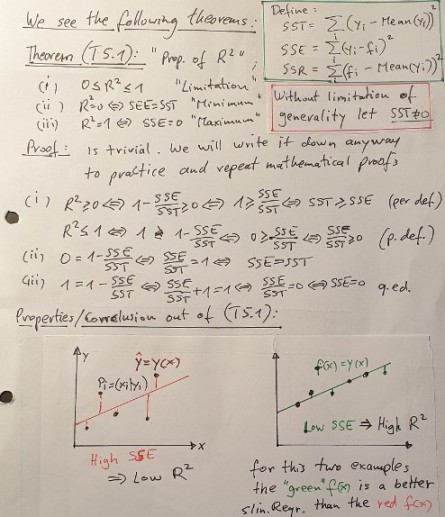 We see the following theorems:
Define:
SST = Σ_i (y_i - Mean(y_i))²
SSE = Σ_i (y_i - f_i)²
SSR = Σ_i (f_i - Mean(y_i))²
Theorem (T5.1): "Prop. of R²";
(i) 0 ≤ R² ≤ 1 "Limitation"
(ii) R²=0 ⇔ SEE=SST "Minimum"
(iii) R²=1 ⇔ SSE=0 "Maximum"
Without limitation of
generality let SST≠0
Proof: Is trivial. We will write it down anyway
to practice and repeat mathematical proofs
(i) R² ≥ 0 ⇔ 1 - SSE/SST ≥ 0 ⇔ 1 ≥ SSE/SST ⇔ SST ≥ SSE (per def.)
R² ≤ 1 ⇔ 1 ≥ 1 - SSE/SST ⇔ 0 ≥ -SSE/SST ⇔ SSE/SST ≥ 0 (p. def.)
(ii) 0 = 1 - SSE/SST ⇔ SSE/SST = 1 ⇔ SSE=SST
(iii) 1 = 1 - SSE/SST ⇔ SSE/SST + 1 = 1 ⇔ SSE/SST = 0 ⇔ SSE=0 q.ed.
Properties/Conclusion out of (T5.1):
y
ŷ=y(x)
P_i=(x_i|y_i)
x
High SSE
⇒ Low R²
f(x)=y(x)
Low SSE ⇒ High R²
for this two examples
the "green" f(x) is a better
slin.Regr. than the red f(x)